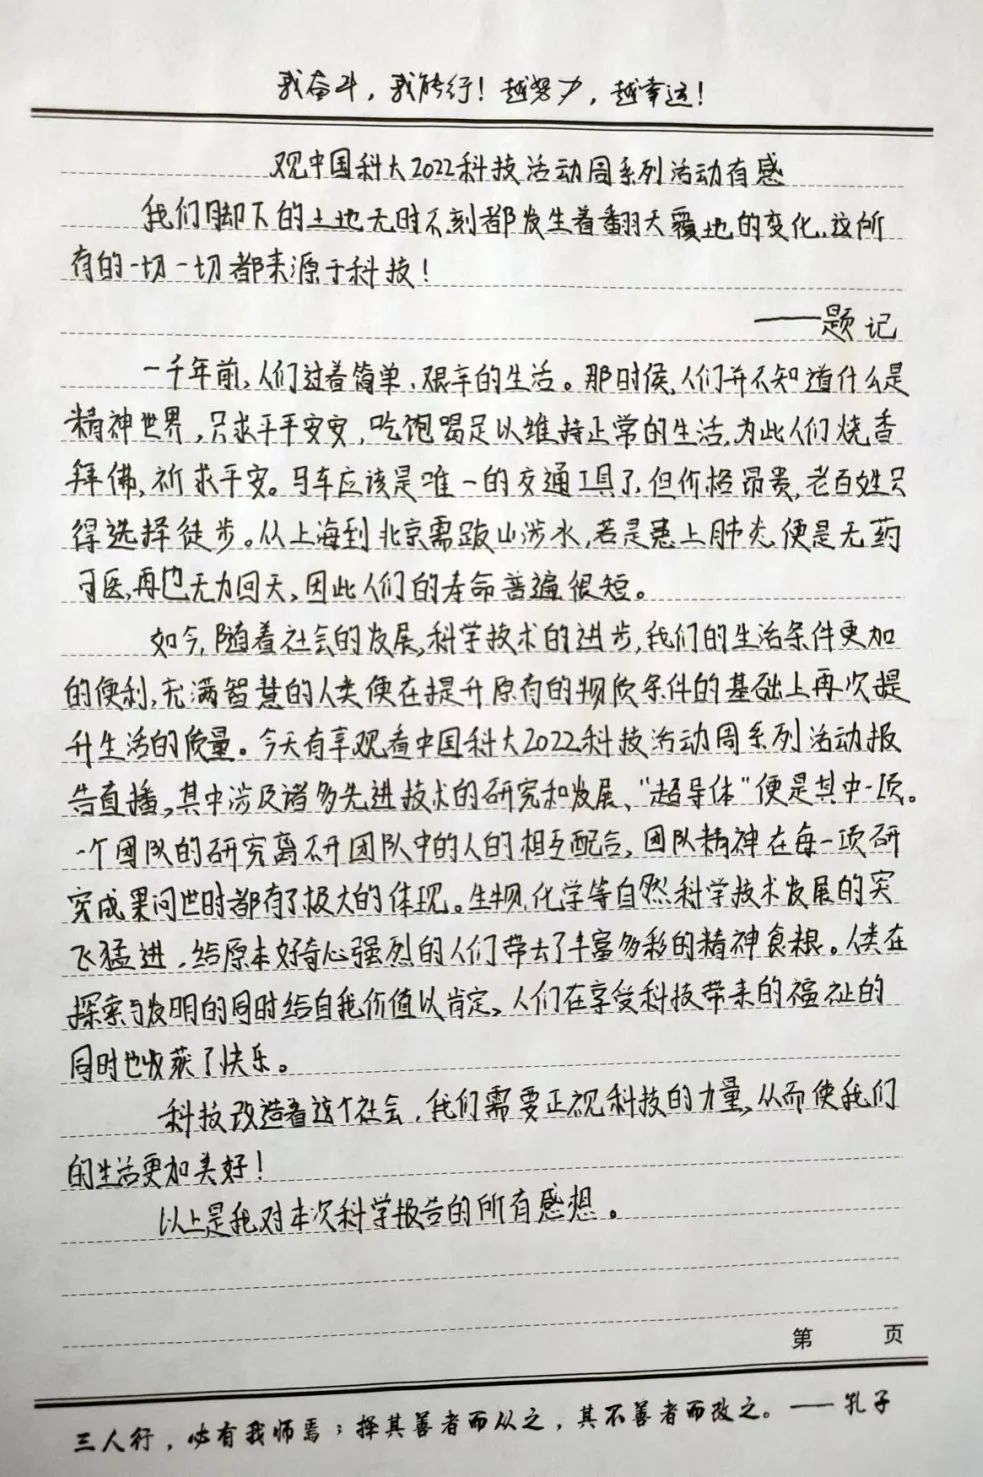 我奋斗，我能行！越努力，越幸运！
观中国科大2022科技活动周系列活动有感
我们脚下的土地无时不刻都发生着翻天覆地的变化，这所
有的一切一切都来源于科技！
——题记
一千年前，人们过着简单、艰辛的生活。那时候，人们并不知道什么是
精神世界，只求平平安安，吃饱喝足以维持正常的生活，为此人们烧香
拜佛，祈求平安。马车应该是唯一的交通工具了，但价格昂贵，老百姓只
得选择徒步。从上海到北京需跋山涉水，若是患上肺炎，便是无药
可医，再也无力回天，因此人们的寿命普遍很短。
如今，随着社会的发展，科学技术的进步，我们的生活条件更加
的便利，充满智慧的人类便在提升原有的物质条件的基础上再次提
升生活的质量。今天有享观看中国科大2022科技活动周系列活动报
告直播，其中涉及诸多先进技术的研究和发展、“超导体”便是其中一项。
一个团队的研究离不开团队中的人的相互配合，团队精神在每一项研
究成果问世时都有了极大的体现。生物，化学等自然科学技术发展的突
飞猛进，给原本好奇心强烈的人们带去了丰富多彩的精神食粮。人类在
探索与发明的同时给自我价值以肯定，人们在享受科技带来的福祉的
同时也收获了快乐。
科技改造着这个社会，我们需要正视科技的力量，从而使我们
的生活更加美好！
以上是我对本次科学报告的所有感想。
第 页
三人行，必有我师焉；择其善者而从之，其不善者而改之。——孔子